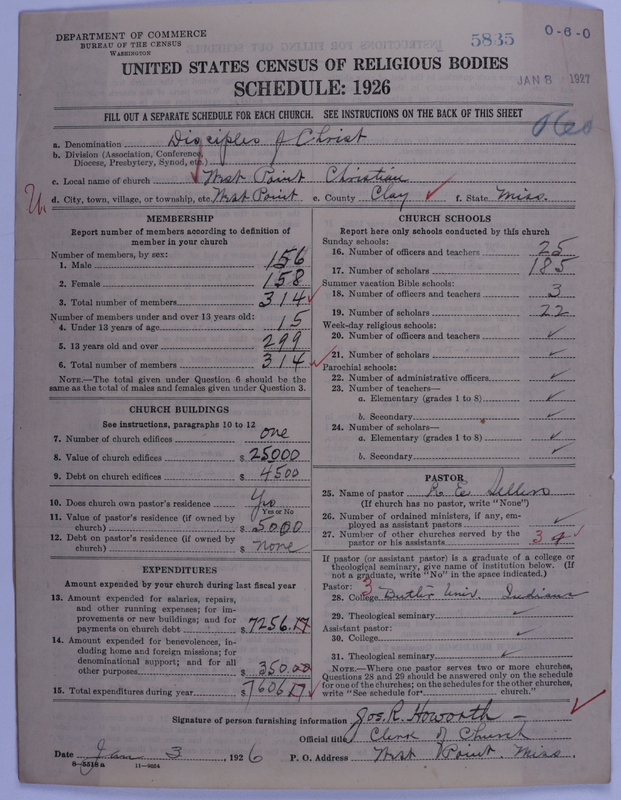 DEPARTMENT OF COMMERCE
BUREAU OF THE CENSUS
WASHINGTON
5835
0-6-0
UNITED STATES CENSUS OF RELIGIOUS BODIES
SCHEDULE: 1926
JAN 8 1927
FILL OUT A SEPARATE SCHEDULE FOR EACH CHURCH. SEE INSTRUCTIONS ON THE BACK OF THIS SHEET
060
a. Denomination Disciples of Christ
b. Division (Association, Conference, Diocese, Presbytery, Synod, etc.)
c. Local name of church West Point Christian
d. City, town, village, or township, etc. West Point e. County Clay f. State Miss.
MEMBERSHIP
Report number of members according to definition of
member in your church
Number of members, by sex:
1. Male 156
2. Female 158
3. Total number of members 314
Number of members under and over 13 years old:
4. Under 13 years of age 15
5. 13 years old and over 299
6. Total number of members 314
NOTE.—The total given under Question 6 should be the
same as the total of males and females given under Question 3.
CHURCH BUILDINGS
See instructions, paragraphs 10 to 12
7. Number of church edifices one
8. Value of church edifices $ 25000
9. Debt on church edifices $ 4500
10. Does church own pastor's residence Yes
Yes or No
11. Value of pastor's residence (if owned by
church) $ 5000
12. Debt on pastor's residence (if owned by
church) $ none
EXPENDITURES
Amount expended by your church during last fiscal year
13. Amount expended for salaries, repairs,
and other running expenses; for im-
provements or new buildings; and for
payments on church debt $ 7256.17
14. Amount expended for benevolences, in-
cluding home and foreign missions; for
denominational support; and for all
other purposes $ 350.00
15. Total expenditures during year $ 7606 17
CHURCH SCHOOLS
Report here only schools conducted by this church
Sunday schools:
16. Number of officers and teachers 25
17. Number of scholars 185
Summer vacation Bible schools:
18. Number of officers and teachers 3
19. Number of scholars 22
Week-day religious schools:
20. Number of officers and teachers ✓
21. Number of scholars ✓
Parochial schools:
22. Number of administrative officers ✓
23. Number of teachers—
a. Elementary (grades 1 to 8) ✓
b. Secondary ✓
24. Number of scholars—
a. Elementary (grades 1 to 8) ✓
b. Secondary ✓
PASTOR
25. Name of pastor R E Sellers
(If church has no pastor, write "None")
26. Number of ordained ministers, if any, em-
ployed as assistant pastors ✓
27. Number of other churches served by the
pastor or his assistants 3
If pastor (or assistant pastor) is a graduate of a college or
theological seminary, give name of institution below. (If
not a graduate, write "No" in the space indicated.)
Pastor: 3
28. College Butler Univ. Indiana
29. Theological seminary ✓
Assistant pastor:
30. College ✓
31. Theological seminary ✓
NOTE.—Where one pastor serves two or more churches,
Questions 28 and 29 should be answered only on the schedule
for one of the churches; on the schedules for the other churches,
write "See schedule for church."
Signature of person furnishing information Joe. R. Howorth
Official title Clerk of Church
Date Jan 3, 1926 P. O. Address West Point. Miss.
8-5518a 11-9054